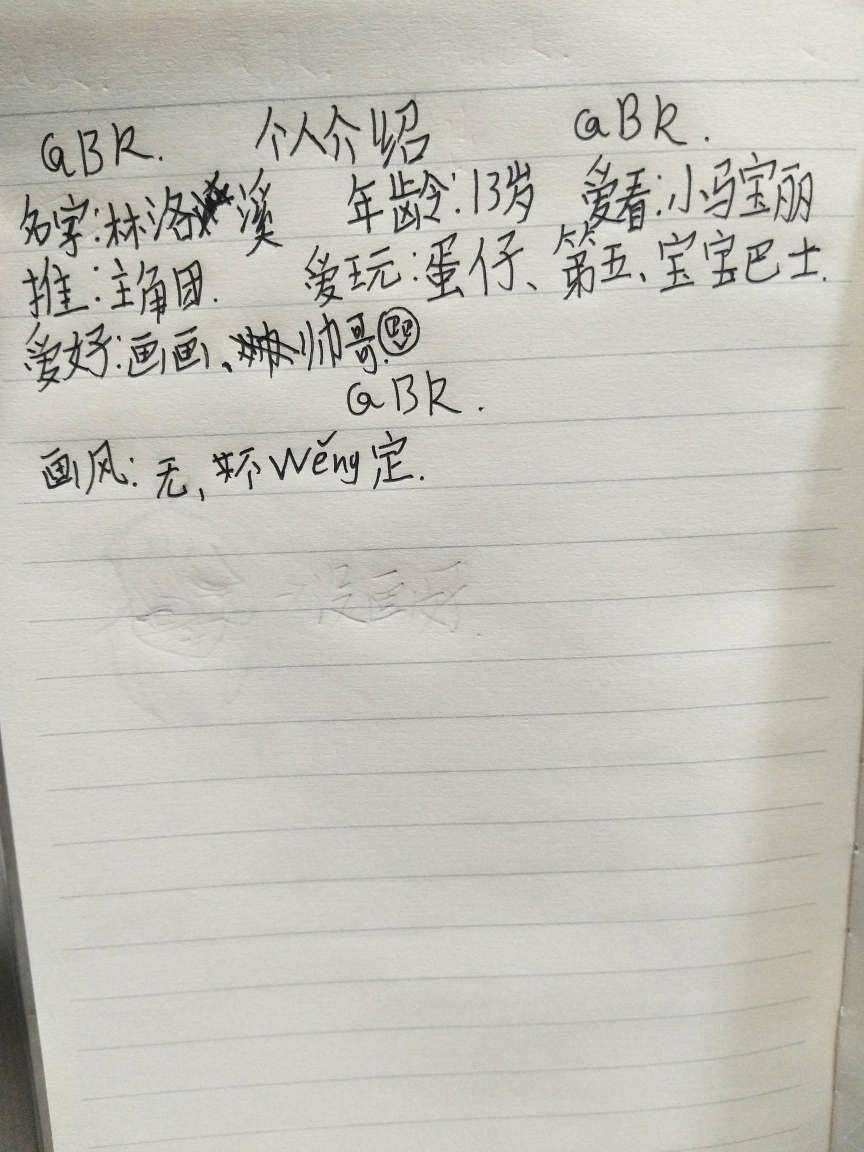 GBK. 个人介绍 GBK.
名字:林洛溪 年龄:13岁 爱看:小马宝丽
推:主角团. 爱玩:蛋仔、第五、宝宝巴士.
爱好:画画、帅哥.
GBK.
画风:无,不wěng定.